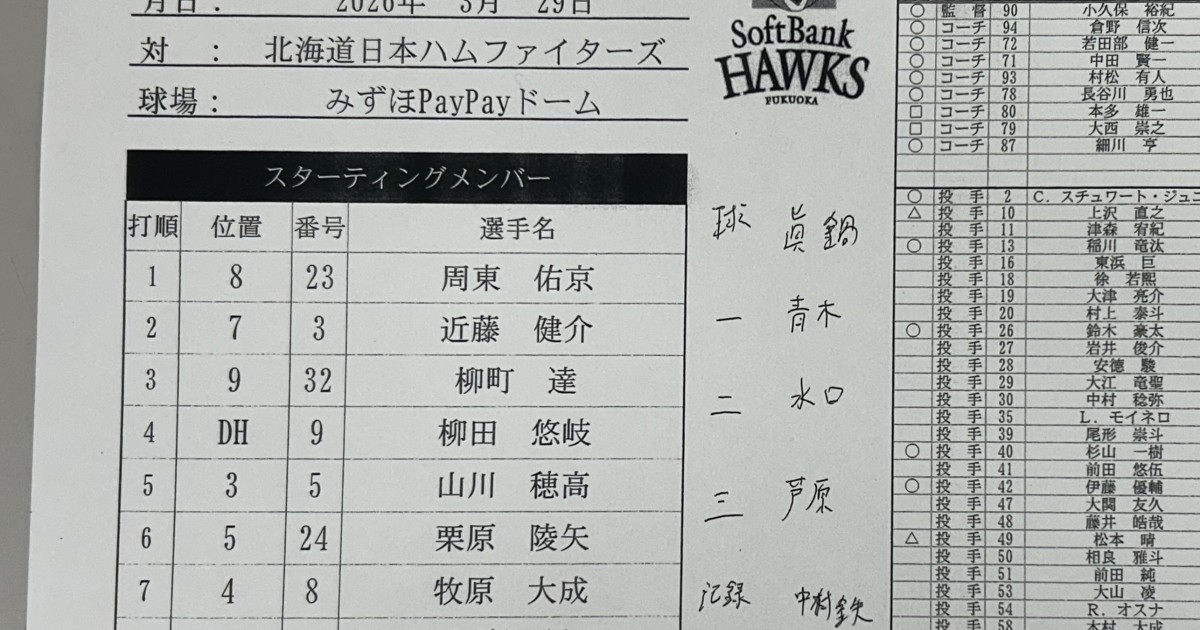 月日： 2026年 3月 29日
対 ： 北海道日本ハムファイターズ
球場： みずほPayPayドーム
SoftBank
HAWKS
FUKUOKA
スターティングメンバー
打順 位置 番号 選手名
1 8 23 周東 佑京
2 7 3 近藤 健介
3 9 32 柳町 達
4 DH 9 柳田 悠岐
5 3 5 山川 穂高
6 5 24 栗原 陵矢
7 4 8 牧原 大成
球 眞鍋
一 青木
二 水口
三 芦原
記録 中村鉄
○ 監督 90 小久保 裕紀
○ コーチ 94 倉野 信次
○ コーチ 72 若田部 健一
○ コーチ 71 中田 賢一
○ コーチ 93 村松 有人
○ コーチ 78 長谷川 勇也
□ コーチ 80 本多 雄一
□ コーチ 79 大西 崇之
○ コーチ 87 細川 亨
○ 投手 2 C. スチュワート・ジュニ
△ 投手 10 上沢 直之
投手 11 津森 宥紀
○ 投手 13 稲川 竜汰
投手 16 東浜 巨
投手 18 徐 若熙
投手 19 大津 亮介
投手 20 村上 泰斗
○ 投手 26 鈴木 豪太
投手 27 岩井 俊介
投手 28 安徳 駿
投手 29 大江 竜聖
投手 30 中村 稔弥
投手 35 L. モイネロ
投手 39 尾形 崇斗
○ 投手 40 杉山 一樹
投手 41 前田 悠伍
○ 投手 42 伊藤 優輔
投手 47 大関 友久
投手 48 藤井 皓哉
△ 投手 49 松本 晴
投手 50 相良 雅斗
投手 51 前田 純
投手 53 大山 凌
投手 54 R. オスナ
投手 58 木村 大成